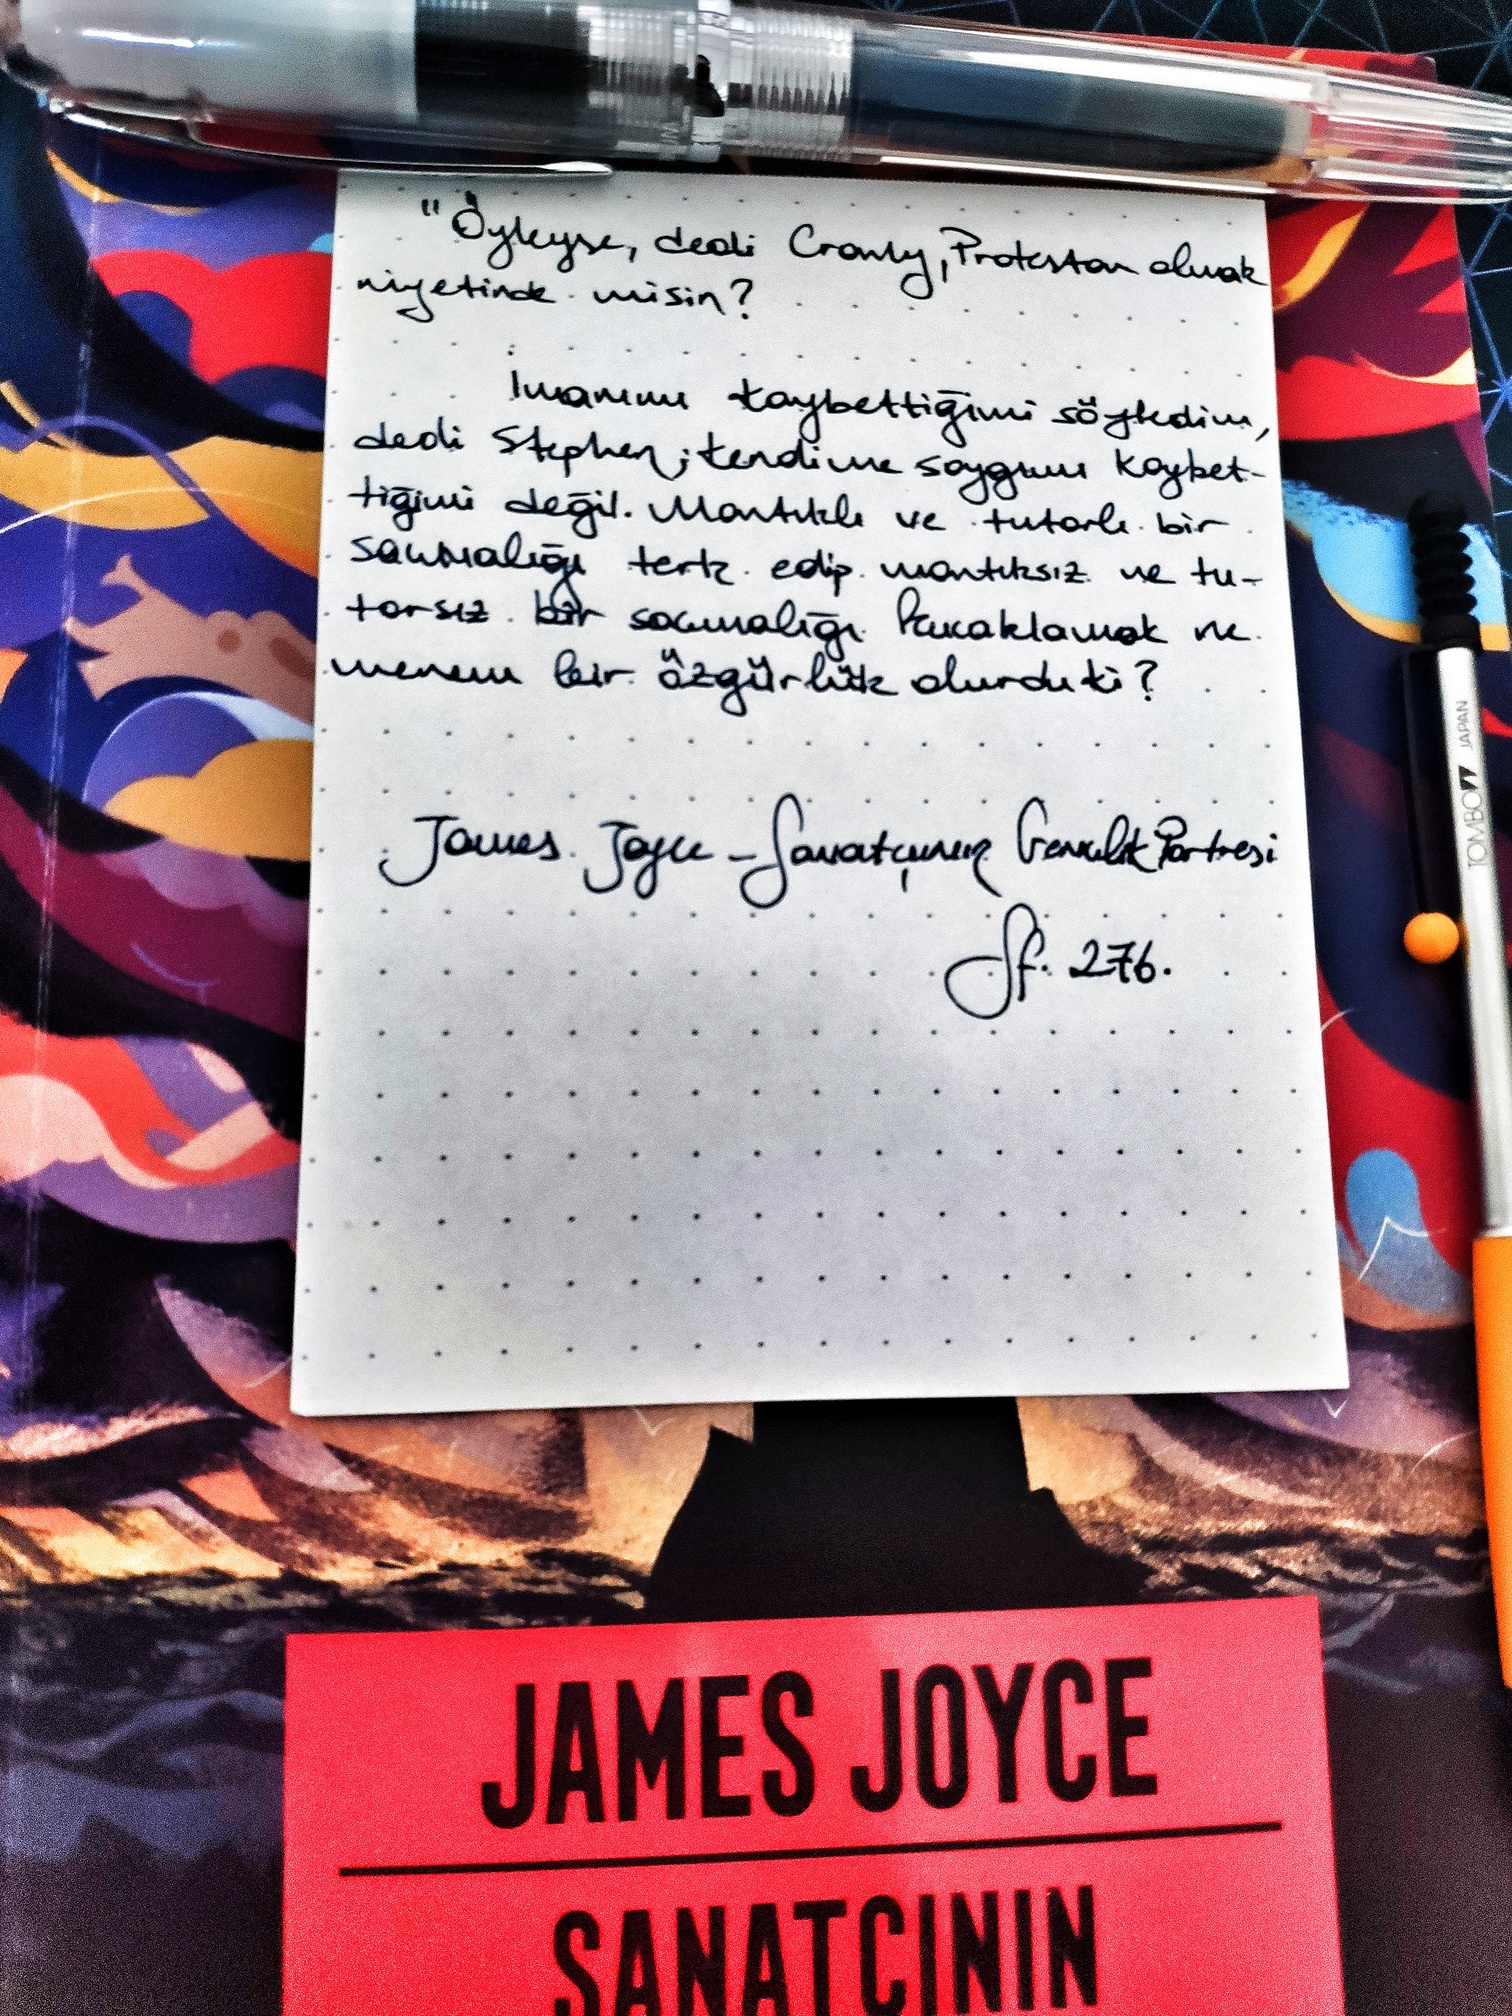 "Öyleyse, dedi Cranly, Protestan olmak
niyetinde misin?
İmanımı kaybettiğimi söyledim,
dedi Stephen; kendime saygımı kaybet-
tiğimi değil. Mantıklı ve tutarlı bir
saçmalığı terk edip mantıksız ve tu-
tarsız bir saçmalığı kucaklamak ne
menem bir özgürlük olurdu ki?
James Joyce - Sanatçının Gençlik Portresi
Sf. 276.
TOMBOW JAPAN
JAMES JOYCE
SANATÇININ